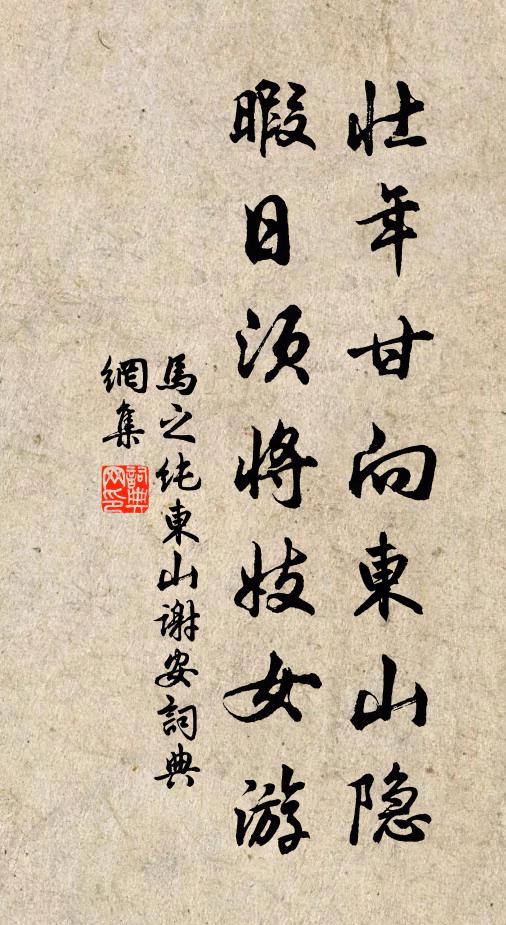 壮年甘向東山隐
暇日須将妓女游
馬之純東山謝安詞典
網集
詞典網印